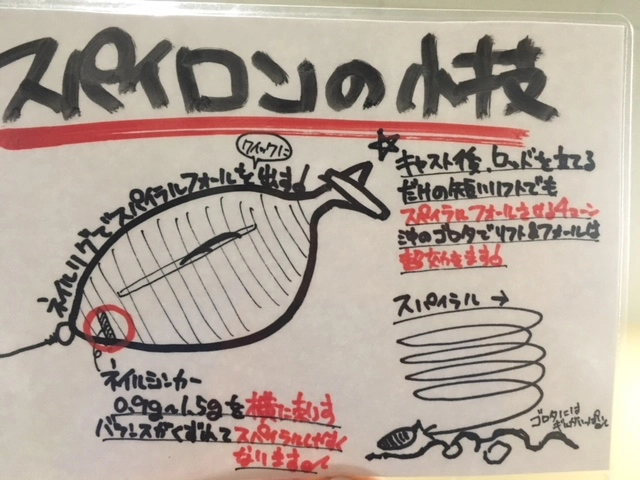 スパイロンの小技
クイックに
ネイルリグでスパイラルフォールを出す!
キャスト後、ロッドを立てる
だけの短いリフトでも
スパイラルフォールさせるチューン
沖のゴロタでリフト&フォールは
超効きます!
スパイラル→
ネイルシンカー
0.9g~1.5gを横に刺す
バランスがくずれてスパイラルしやすく
なります。
ゴロタには